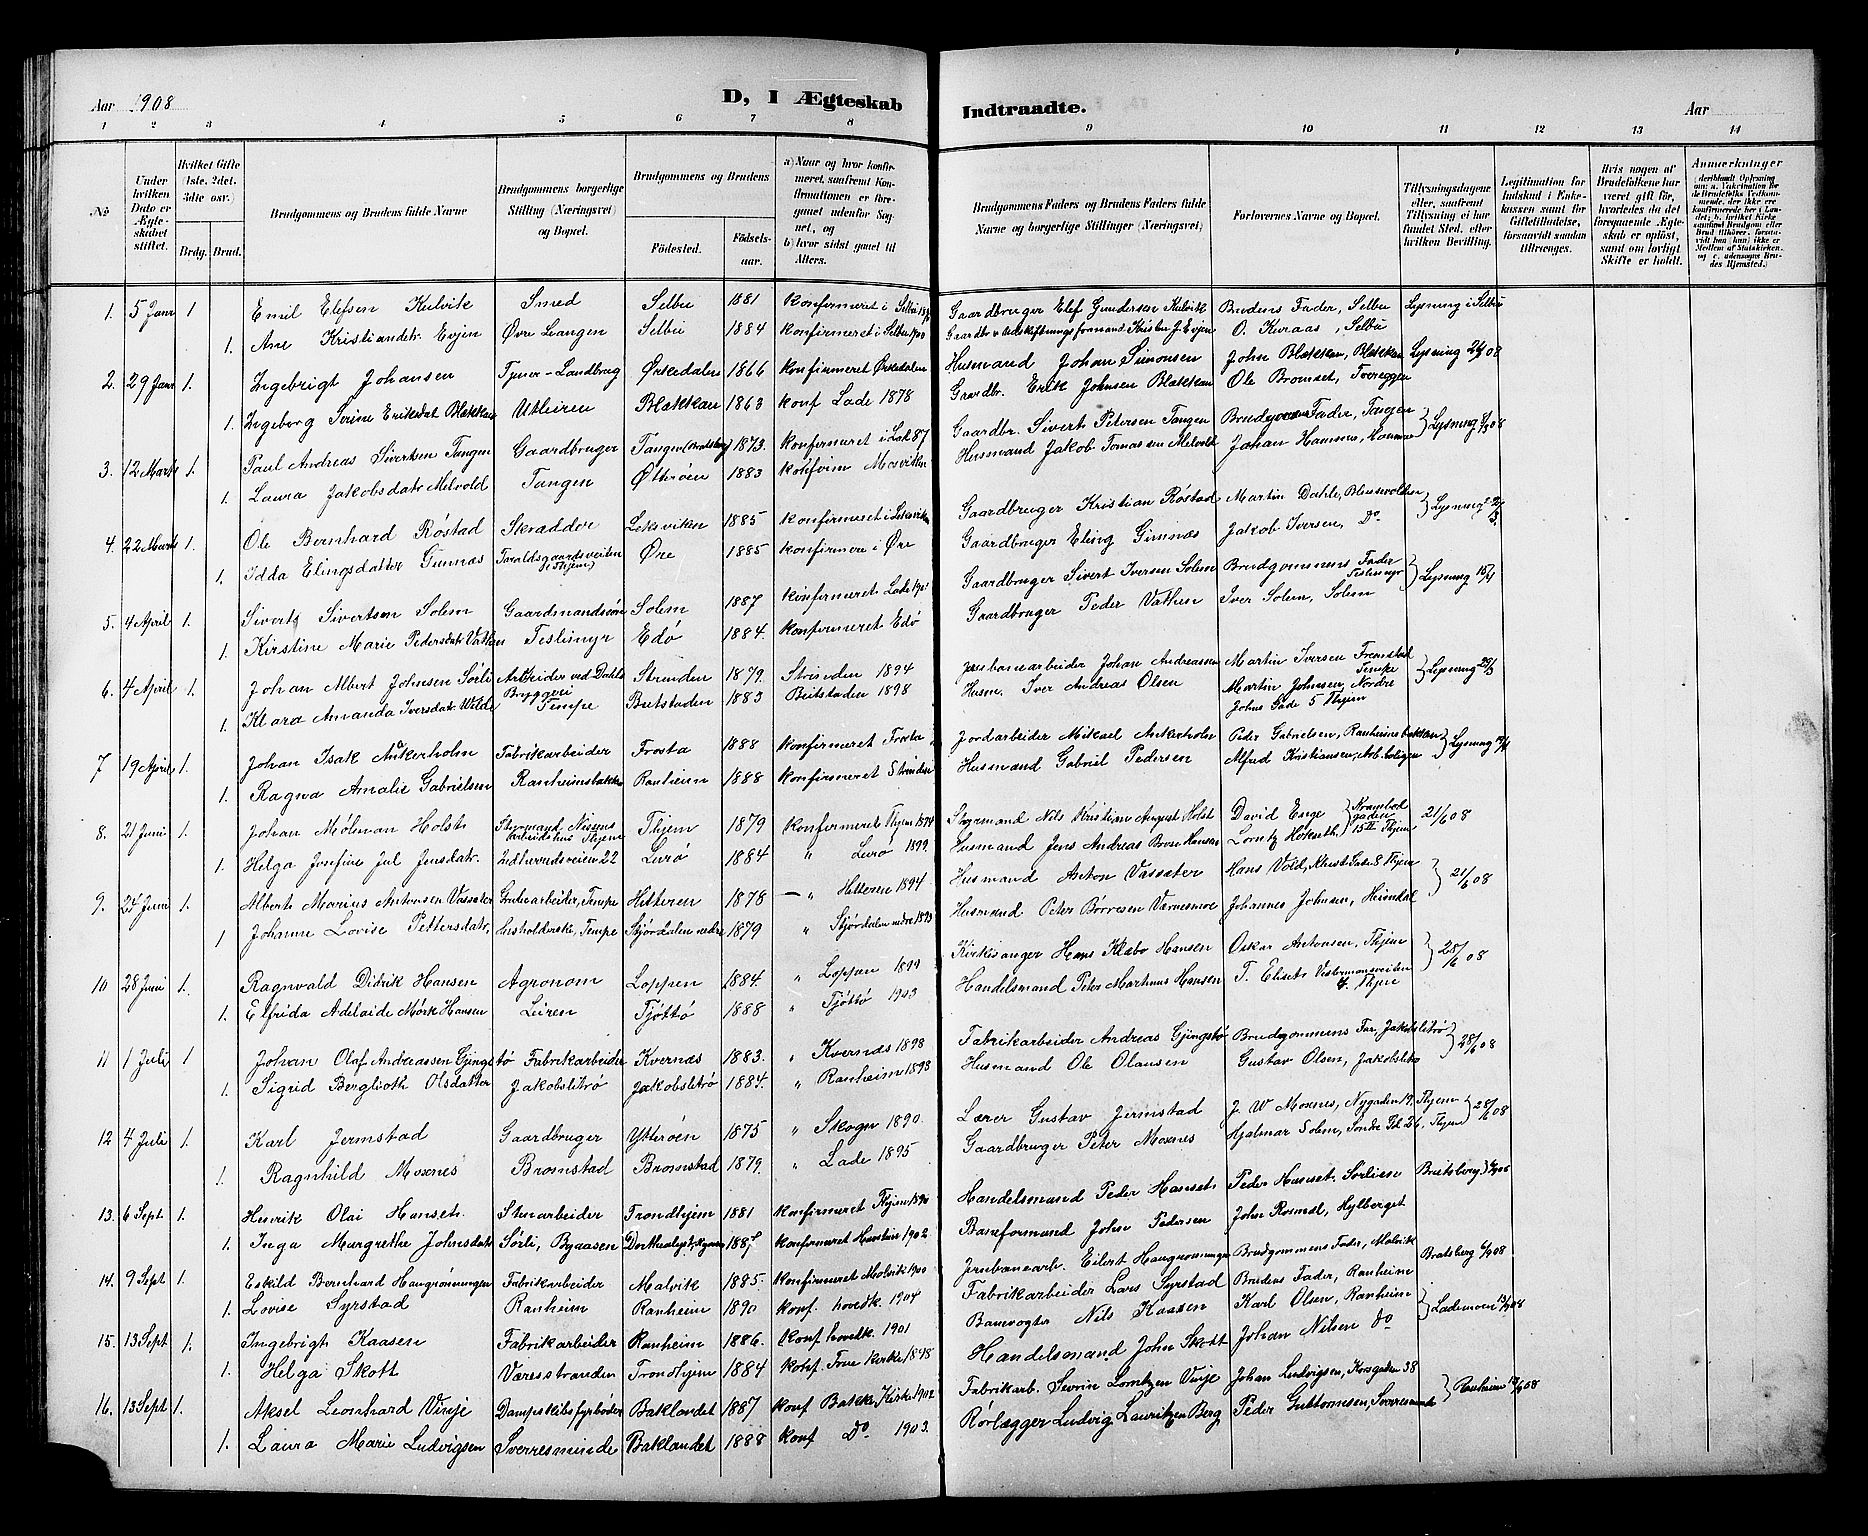 Aar 1908
D, I Ægteskab
Indtraadte.
Aar
1 2 3 4 5 6 7 8 9 10 11 12 13 14
No
Under hvilken Dato er Ægteskabet stiftet.
Hvilket Gifte (1ste, 2det, 3die osv.)
Brdg. Brud.
Brudgommens og Brudens fulde Navne
Brudgommens borgerlige Stilling (Næringsvei) og Bopæl.
Brudgommens og Brudens
Fødested.
Fødselsaar.
a) Naar og hvor konfirmeret, saafremt Konfirmationen er foregaaet udenfor Sognet, og
b) hvor sidst gaaet til Alters.
Brudgommens Faders og Brudens Faders fulde Navne og borgerlige Stillinger (Næringsvei)
Forlovernes Navne og Bopæl.
Tillysningsdagene eller, saafremt Tillysning ei har fundet Sted, efter hvilken Bevilling.
Legitimation for Indskud i Enkekassen samt for Giftetilladelse, forsaavidt saadan tiltrænges.
Hvis nogen af Brudefolkene har været gift før, hvorledes da det foregaaende Ægteskab er opløst, samt om lovligt Skifte er holdt.
Anmærkninger
1. 5 Janr 1 Emil Elefsen Kulvik Smed Selbu 1881 konfirmeret i Selbu Gaardbruger Elef Gundersen Kulvik Brudens Fader, Selbu Lysning i Selbu
1. Ane Kristiandtr. Evjen Øvre Leangen Selbu 1884 konfirmeret i Selbu 1900 Gaardbr. Udskiftningsformand Kristen J. Evjen O. Kuraas, Selbu
2. 29 Janr 1. Ingebrigt Johansen Tjener-Landbrug Ørkedalen 1866 konfirmeret Ørkedalen Husmand Johan Simonsen John Blækkan, Blækkan Lysning
1. Ingeborg Serine Eriksdat. Blækkan Utleiren Blækkan 1863 konf Lade 1878 Gaardbr. Erik Johnsen Blækkan Ole Bromset, Tvereggen
3. 12 Marts 1. Paul Andreas Sivertsen Tangen Gaardbruger Tangen 1873. konfirmeret i Lade 87 Gaardbr. Sivert Petersen Tangen Brudgommens Fader, Tangen Lysning 8/3 08
1. Laura Jakobsdatr Melvold Tangen Ytterøen 1883 konfirm Mosviken Husmand Jakob Tomassen Melvold Johan Hansen
4. 22 Marts 1. Ole Bernhard Røstad Skrædder Leksviken 1885 konfirmeret i Leksviken Gaardbruger Kristian Røstad Martin Dahle, Blussevolden Lysning
1. Idda Elingsdatter Gimnæs Taraldsgaardsveiten Thjem Øre 1885 konfirmere i Øre Gaardbruger Eling Gimnæs Jakob Iversen, Do.
5. 4 April 1. Sivert Sivertsen Solem Gaardmandssøn Solem 1887 konfirmeret Lade Gaardbruger Sivert Iversen Solem Brudgommens Fader Teslimyr Lysning 15/4
1. Kirstine Marie Pedersdatr Vatten Teslimyr Edø 1884. konfirmeret Edø Gaardbruger Peder Vatten Iver Solem, Solem
6. 4 April 1. Johan Albert Johnsen Sørli Arbeider ved Dahls Bryggeri Strinden 1879. Strinden 1894 Jernbanearbeider Johan Andreassen Martin Iversen Fremstad Tempe Lysning 29/3
1. Klara Amanda Iversdatr. Wilde Tempe Beitstaden 1883 Beitstaden 1898 Husm. Iver Andreas Olsen Martin Johnsen, Nordre Johns Gade 5 Thjem
7 19 April 1. Johan Isak Ankerholm Fabrikarbeider Frosta 1888 konfirmeret Frosta Jordarbeider Mikael Ankerholm Peder Gabrielsen, Ranheimsbakken Lysning
1. Ragna Amalie Gabrielsen Ranheimsbakken Ranheim 1888 konfirmeret Strinden Husmand Gabriel Pedersen Alfred Kristiansen, Arb.boligen
8. 21 Juni 1. Johan Mølman Holst Styrmand Nissens arbeidshus Thjem Thjem 1879 konfirmeret Thjem 1894 Styrmand Nils Kristian August Holst David Enge Krambodgaden 21/6 08
1. Helga Josefine Jul Jensdatr. Indherredsveien 22 Lurø 1884 " Lurø 1899. Husmand Jens Andreas Brose Hansen Lorntz 15 II Thjem
9. 24 Juni 1. Albert Marius Antonsen Vasseter Grubearbeider, Tempe Hitteren 1878 " Hitteren 1894 Husmand Anton Vasseter Hans Vold, Gade 8 Thjem 21/6 08
1 Johanne Lovise Pettersdatr. Husholderske, Tempe Stjørdalen nedre 1879 " Stjørdalen nedre 1893 Husmand Peter Børresen Værnesmoe Johannes Johnsen, Heimdal
10 28 Juni 1. Ragnvald Didrik Hansen Agronom Loppen 1884. " Loppen 1899 Kirkesanger Hans Klabo Hansen Oskar Antonsen, Thjem 28/6 08
1. Elfrida Adelaide Mørk Hansen Leiren Tjøttø 1888 " Tjøttø 1903 Handelsmand Peter Martinus Hansen T. Elisets Thjem
11 1 Juli 1 Johan Olaf Andreassen Gjngstø Fabrikarbeider Kvernæs 1883. " Kvernæs 1898 Fabrikarbeider Andreas Gjngstø Brudgommens Far, Jakobslitrø 28/6 08
1. Sigrid Berglioth Olsdatter Jakobslitrø Jakobslitrø 1884. " Ranheim 1898 Husmand Ole Olausen Gustav Olsen, Jakobslitrø
12 4 Juli 1. Karl Jermstad Gaardbruger Ytterøen 1875 " Skogn 1890. Lærer Gustav Jermstad J. W Moxnes, Nygaden 19. Thjem 28/6 08
1. Ragnhild Moxnes Bromstad Bromstad 1879. " Lade 1895 Gaardbruger Peter Moxnes Hjalmar Solem, Søndre 26, Thjem
13. 6 Sept. 1. Henrik Olai Hanset. Stenarbeider Trondhjem 1881 konfirmeret Thjem Handelsmand Peder Hanset. Peder Hanset. Sørlien Bratsberg
1. Inga Margrethe Johnsdatr Sørli, Byaasen 1887 konfirmeret Havstein 1902 Baneformand John Pedersen John Rosmæl, Hylberget
14. 9 Sept 1. Eskild Bernhard Haugrønningen Fabrikarbeider Malvik 1885. konfirmeret Malvik 1900 Jernbanearb. Eilert Haugrønningen Brudgommens Fader, Malvik Bratsberg 6/9 08
1. Lovise Syrstad Ranheim Ranheim 1890 konf. hovedk. 1904 Fabrikarbeider Lars Syrstad Brudens Fader, Ranheim
15. 13 Sept 1. Ingebrigt Kaasen Fabrikarbeider Ranheim 1886. konf hovedk. 1901 Banevogter Nils Kaasen Karl Olsen, Ranheim Lademoen 13/9 08
1. Helga Skott Væresstranden Trondhjem 1884 konf. Frue Kirke 1898 Handelsmand John Skott Johan Nilsen do
16. 13 Sept 1. Aksel Leonhard Vinje Dampskibsfyrbøder Baklandet 1887 konf Bakke Kirke 1902 Fabrikarb. Sevrin Lorntzen Vinje Johan Ludvigsen, Korsgaden 38 Ranheim 13/9 08
1. Laura Marie Ludvigsen Sverresminde Baklandet 1888 konf Do. 1903. Rørlægger Ludvig Lauritzen Berg Peder Guttormsen, Sverresminde